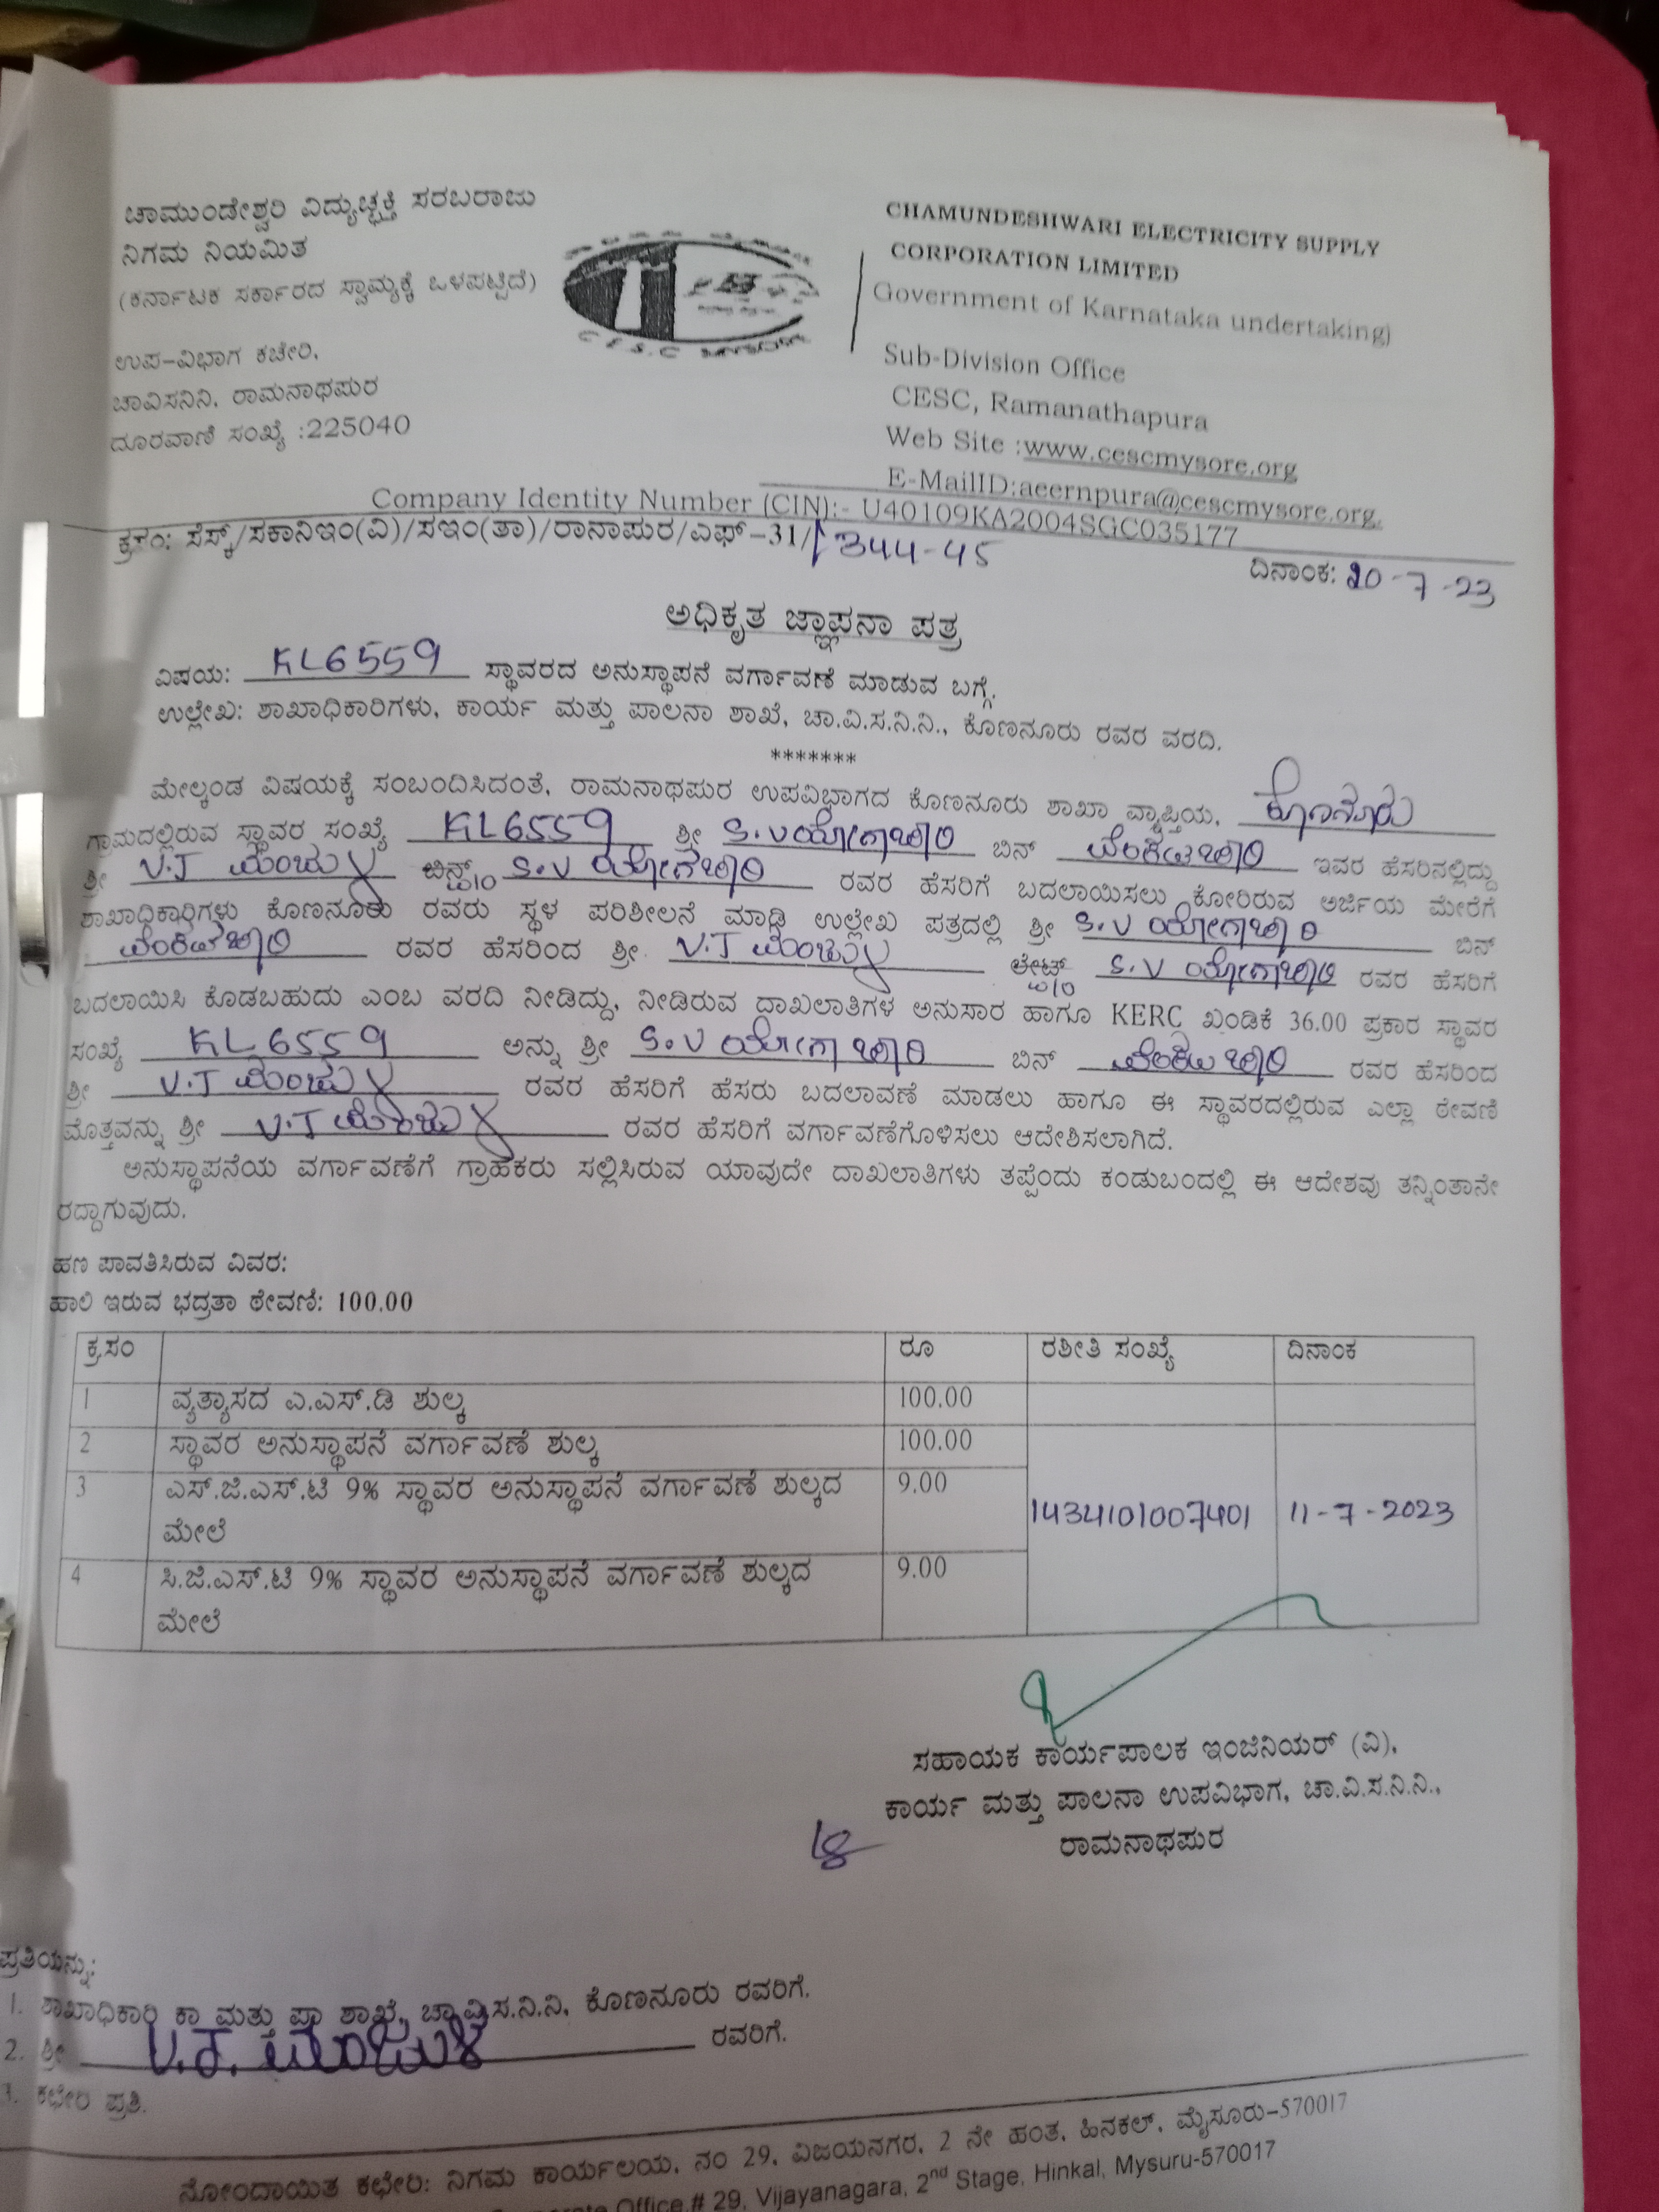 ಚಾಮುಂಡೇಶ್ವರಿ ವಿದ್ಯುಚ್ಛಕ್ತಿ ಸರಬರಾಜು
ನಿಗಮ ನಿಯಮಿತ
(ಕರ್ನಾಟಕ ಸರ್ಕಾರದ ಸ್ವಾಮ್ಯಕ್ಕೆ ಒಳಪಟ್ಟಿದೆ)
ಉಪ-ವಿಭಾಗ ಕಚೇರಿ,
ಚಾವಿಸನಿನಿ, ರಾಮನಾಥಪುರ
ದೂರವಾಣಿ ಸಂಖ್ಯೆ :225040
C E S C MYSORE
CHAMUNDESHWARI ELECTRICITY SUPPLY
CORPORATION LIMITED
Government of Karnataka undertaking)
Sub-Division Office
CESC, Ramanathapura
Web Site :www.cescmysore.org
E-MailID:aeernpura@cescmysore.org.
Company Identity Number (CIN):- U40109KA2004SGC035177
ಕ್ರಸಂ: ಸೆಸ್ಕ್/ಸಕಾನಿಇಂ(ವಿ)/ಸಇಂ(ತಾ)/ರಾನಾಪುರ/ಎಫ್-31/1344-45
ದಿನಾಂಕ: 20-7-23
ಅಧಿಕೃತ ಜ್ಞಾಪನಾ ಪತ್ರ
ವಿಷಯ: KL6559 ಸ್ಥಾವರದ ಅನುಸ್ಥಾಪನೆ ವರ್ಗಾವಣೆ ಮಾಡುವ ಬಗ್ಗೆ.
ಉಲ್ಲೇಖ: ಶಾಖಾಧಿಕಾರಿಗಳು, ಕಾರ್ಯ ಮತ್ತು ಪಾಲನಾ ಶಾಖೆ, ಚಾ.ವಿ.ಸ.ನಿ.ನಿ., ಕೊಣನೂರು ರವರ ವರದಿ.
*******
ಮೇಲ್ಕಂಡ ವಿಷಯಕ್ಕೆ ಸಂಬಂದಿಸಿದಂತೆ, ರಾಮನಾಥಪುರ ಉಪವಿಭಾಗದ ಕೊಣನೂರು ಶಾಖಾ ವ್ಯಾಪ್ತಿಯ, ಕೊಣನೂರು
ಗ್ರಾಮದಲ್ಲಿರುವ ಸ್ಥಾವರ ಸಂಖ್ಯೆ KL6559 ಶ್ರೀ S.V ಯೋಗಾಚಾರಿ ಬಿನ್ ವೆಂಕಟಚಾರಿ ಇವರ ಹೆಸರಿನಲ್ಲಿದ್ದು
ಶ್ರೀ V.J ಮಂಜುಳ W/o S.V ಯೋಗಚಾರಿ ರವರ ಹೆಸರಿಗೆ ಬದಲಾಯಿಸಲು ಕೋರಿರುವ ಅರ್ಜಿಯ ಮೇರೆಗೆ
ಶಾಖಾಧಿಕಾರಿಗಳು ಕೊಣನೂರು ರವರು ಸ್ಥಳ ಪರಿಶೀಲನೆ ಮಾಡಿ ಉಲ್ಲೇಖ ಪತ್ರದಲ್ಲಿ ಶ್ರೀ S.V ಯೋಗಾಚಾರಿ ಬಿನ್
ವೆಂಕಟಚಾರಿ ರವರ ಹೆಸರಿಂದ ಶ್ರೀ. V.J ಮಂಜುಳ W/o S.V ಯೋಗಾಚಾರಿ ರವರ ಹೆಸರಿಗೆ
ಬದಲಾಯಿಸಿ ಕೊಡಬಹುದು ಎಂಬ ವರದಿ ನೀಡಿದ್ದು, ನೀಡಿರುವ ದಾಖಲಾತಿಗಳ ಅನುಸಾರ ಹಾಗೂ KERC ಖಂಡಿಕೆ 36.00 ಪ್ರಕಾರ ಸ್ಥಾವರ
ಸಂಖ್ಯೆ KL6559 ಅನ್ನು ಶ್ರೀ S.V ಯೋಗಾಚಾರಿ ಬಿನ್ ವೆಂಕಟಚಾರಿ ರವರ ಹೆಸರಿಂದ
ಶ್ರೀ V.J ಮಂಜುಳ ರವರ ಹೆಸರಿಗೆ ಹೆಸರು ಬದಲಾವಣೆ ಮಾಡಲು ಹಾಗೂ ಈ ಸ್ಥಾವರದಲ್ಲಿರುವ ಎಲ್ಲಾ ಠೇವಣಿ
ಮೊತ್ತವನ್ನು ಶ್ರೀ V.J ಮಂಜುಳ ರವರ ಹೆಸರಿಗೆ ವರ್ಗಾವಣೆಗೊಳಿಸಲು ಆದೇಶಿಸಲಾಗಿದೆ.
ಅನುಸ್ಥಾಪನೆಯ ವರ್ಗಾವಣೆಗೆ ಗ್ರಾಹಕರು ಸಲ್ಲಿಸಿರುವ ಯಾವುದೇ ದಾಖಲಾತಿಗಳು ತಪ್ಪೆಂದು ಕಂಡುಬಂದಲ್ಲಿ ಈ ಆದೇಶವು ತನ್ನಿಂತಾನೇ
ರದ್ದಾಗುವುದು.
ಹಣ ಪಾವತಿಸಿರುವ ವಿವರ:
ಹಾಲಿ ಇರುವ ಭದ್ರತಾ ಠೇವಣಿ: 100.00
ಕ್ರ.ಸಂ ರೂ ರಶೀತಿ ಸಂಖ್ಯೆ ದಿನಾಂಕ
1 ವ್ಯತ್ಯಾಸದ ಎ.ಎಸ್.ಡಿ ಶುಲ್ಕ 100.00
2 ಸ್ಥಾವರ ಅನುಸ್ಥಾಪನೆ ವರ್ಗಾವಣೆ ಶುಲ್ಕ 100.00
3 ಎಸ್.ಜಿ.ಎಸ್.ಟಿ 9% ಸ್ಥಾವರ ಅನುಸ್ಥಾಪನೆ ವರ್ಗಾವಣೆ ಶುಲ್ಕದ 9.00
ಮೇಲೆ
1434101007401 11-7-2023
4 ಸಿ.ಜಿ.ಎಸ್.ಟಿ 9% ಸ್ಥಾವರ ಅನುಸ್ಥಾಪನೆ ವರ್ಗಾವಣೆ ಶುಲ್ಕದ 9.00
ಮೇಲೆ
ಸಹಾಯಕ ಕಾರ್ಯಪಾಲಕ ಇಂಜಿನಿಯರ್ (ವಿ),
ಕಾರ್ಯ ಮತ್ತು ಪಾಲನಾ ಉಪವಿಭಾಗ, ಚಾ.ವಿ.ಸ.ನಿ.ನಿ.,
ರಾಮನಾಥಪುರ
ಪ್ರತಿಯನ್ನು:
1. ಶಾಖಾಧಿಕಾರಿ ಕಾ ಮತ್ತು ಪಾ ಶಾಖೆ, ಚಾ.ವಿ.ಸ.ನಿ.ನಿ, ಕೊಣನೂರು ರವರಿಗೆ.
2. ಶ್ರೀ V.J. ಮಂಜುಳ ರವರಿಗೆ.
3. ಕಛೇರಿ ಪ್ರತಿ.
ನೋಂದಾಯಿತ ಕಛೇರಿ: ನಿಗಮ ಕಾರ್ಯಲಯ, ನಂ 29, ವಿಜಯನಗರ, 2 ನೇ ಹಂತ, ಹಿನಕಲ್, ಮೈಸೂರು-570017
Office,# 29, Vijayanagara, 2nd Stage, Hinkal, Mysuru-570017